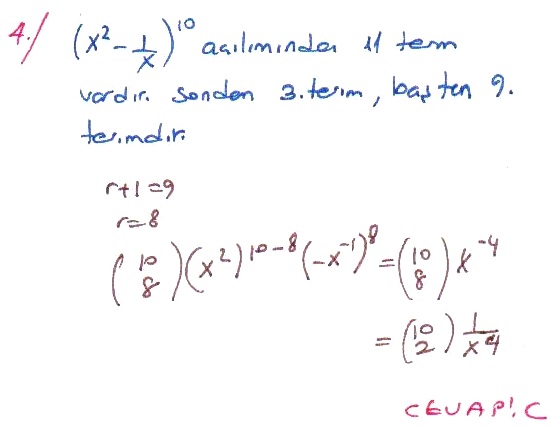 4./ (x² - 1/x)¹⁰ açılımında 11 terim
vardır. Sondan 3.terim, baştan 9.
terimdir.
r+1=9
r=8
(10 8)(x²)¹⁰⁻⁸(-x⁻¹)⁸ = (10 8) x⁻⁴
= (10 2) 1/x⁴
CEVAP: C